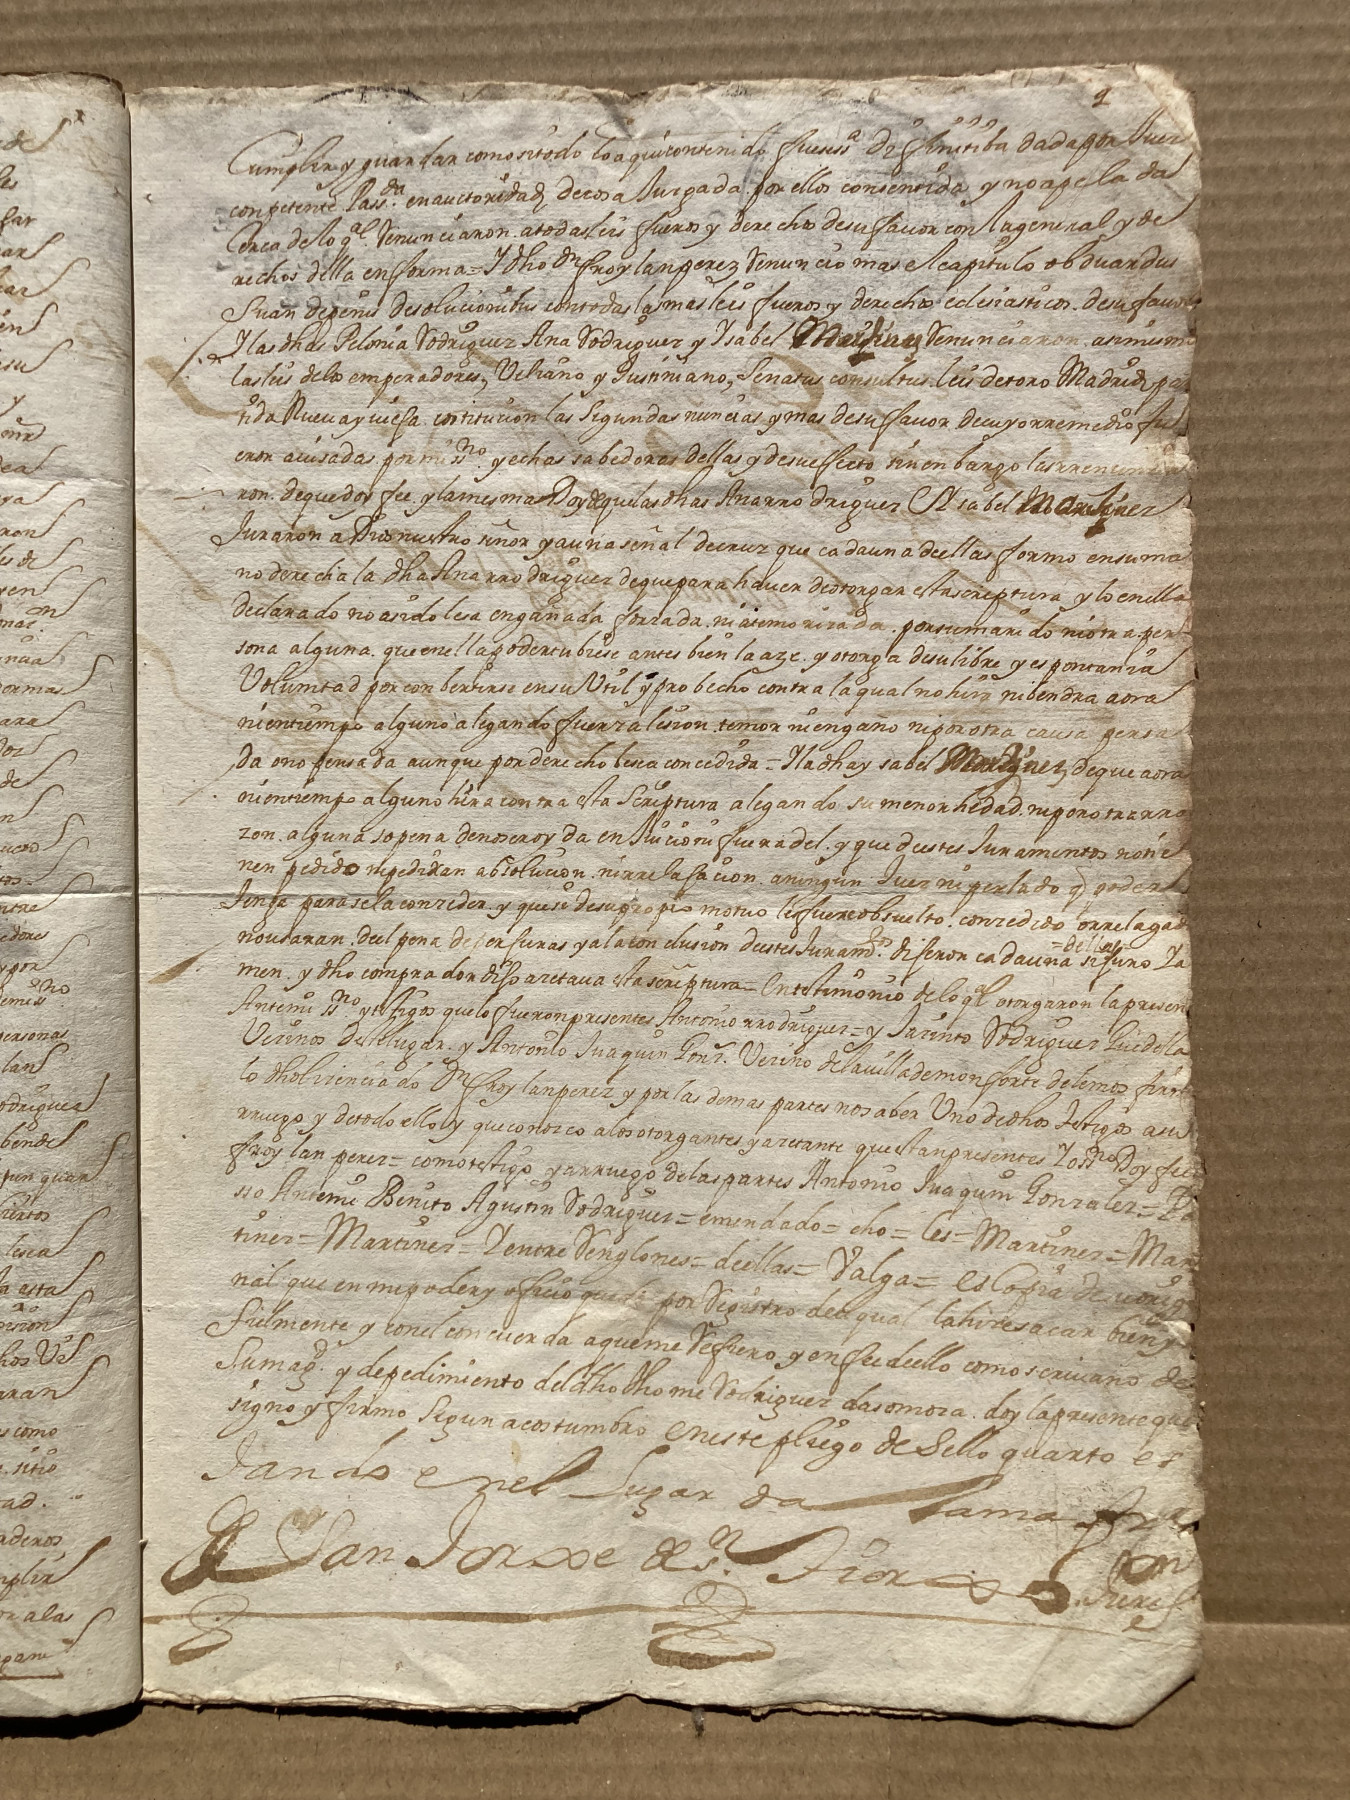 2
Cumplir y guardar como si todo lo aqui contenido fuese ssª difinitiba dada por Juez
conpetente Passda en auctoridad de cosa Juzgada por ellos consentida y no apelada
cerca de lo ql Renunciaron a todas leis fueros y derechos de su favor con la general y de
rechos della en forma = Y dho Dn froylan perez Renuncio mas el capitulo obduardus
suan de penis de solucionibus con todas las mas leis fueros y derechos eclesiasticos de su favor
Y las dhas Pelonia Rodriguez Ana Rodriguez y Ysabel Martinez Renunciaron asimism
las leis de los emperadores Veliano y Justiniano Senatus consultus leis de toro Madrid par
tida Nueva y viexa costitucion las Segundas nuncias y mas de su favor de cuyo rremedio fu
eron avisadas por mi ssno y echas sabedoras dellas y de su effecto sin enbargo las rrenuncia
ron de que doy fee y la mesma Doy de que las dhas Ana rrodriguez E Ysabel Martinez
Juraron a Dios nuestro señor y a una señal de cruz que cada una deellas formo en su ma
no derecha la dha Ana rrodriguez de que para haver de otorgar esta scriptura y lo en ella
declarado no a sido lesa engañada forzada ni atemorizada por su marido ni otra per
sona alguna que en ella poder tubiese antes bien la aze y otorga de su libre y espontania
Voluntad por conbertirse en su Util y probecho contra la qual no hira ni bendra aora
ni en tiempo alguno alegando fuerza lesion temor ni engaño ni por otra causa pensa
da o no pensada aunque por derecho lesea concedida = Y la dha Ysabel Martinez de que aora
ni en tiempo alguno hira contra esta Scriptura alegando su menor hedad ni por otra rra
zon alguna so pena de no ser oyda en Juicio ni fuera del y que destes Juramentos no tie
nen pedido ni pediran absolucion ni rrelaxacion a ningun Juez ni perlado q poder
tenga para se la conzeder y que si de su propio motuo les fuere obsuelto concedido o rrelagado
no usaran del pena de perjuras y a la conclusion destes Juramos dijeron cada una =dellas= si juro Ya
men y dho comprador dijo azetava esta scriptura = En testimonio de lo ql otorgaron la presen
Ante mi ssno y testigos que lo fueron presentes Antonio rrodriguez = y Jazinto Rodriguez
Vecinos del lugar y Antonio Juaquin Gonz. Vecino de la villa de monforte de lemos firmo
lo dho lizenciado Dn froylan perez y por las demas partes no saber Uno de dhos testigos a su
rruego y de todo ello y que conozco a los otorgantes y azetante que estan presentes Yo ssno Doy fee
froylan perez = como testigo y a rruego de las partes Antonio Juaquin Gonzalez = Pa
sso Ante mi Benito Agustin Rodriguez = emendado = cho = les = Martinez = Mar
tinez = Martinez = Y entre Renglones = deellas = Valga = es copia de su orig
nal que en mi poder y oficio queda por Registro del qual la hize sacar bien y
fielmente y con el concuerda a que me Refiero y en fee deello como scrivano de
su magd y de pedimiento del dho Thome Rodriguez dasomoza doy la presente que
signo y firmo Segun acostumbro en este pliego de Sello quarto es
tando en el Lugar da Lama
San Jorxe